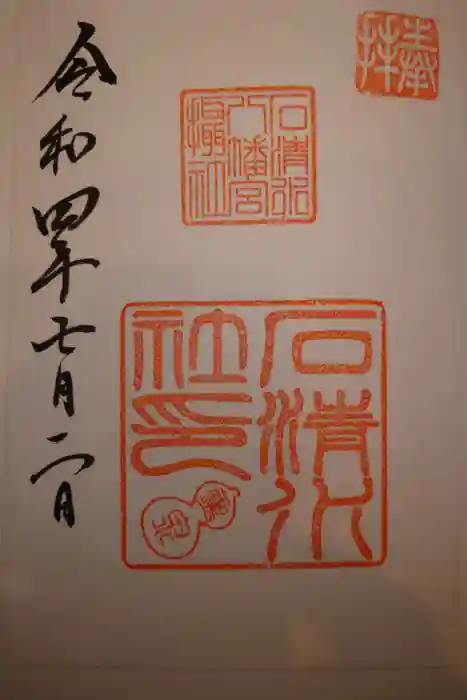 奉拝
石清水
八幡宮
攝社
石清水
社印
令和四年七月二日